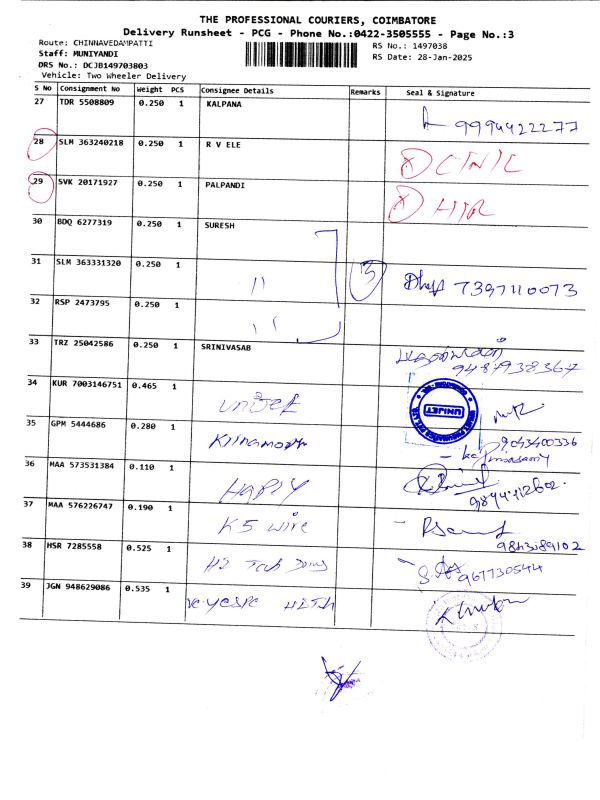 THE PROFESSIONAL COURIERS, COIMBATORE
Delivery Runsheet - PCG - Phone No.:0422-3505555 - Page No.:3
Route: CHINNAVEDAMPATTI
RS No.: 1497038
Staff: MUNIYANDI
RS Date: 28-Jan-2025
DRS No.: DCJB149703803
Vehicle: Two Wheeler Delivery
S No Consignment No Weight PCS Consignee Details Remarks Seal & Signature
27 TDR 5508809 0.250 1 KALPANA
9994422277
28 SLM 363240218 0.250 1 R V ELE
29 SVK 20171927 0.250 1 PALPANDI
30 BDQ 6277319 0.250 1 SURESH
31 SLM 363331320 0.250 1 " 3 7397110073
32 RSP 2473795 0.250 1 "
33 TRZ 25042586 0.250 1 SRINIVASAB
9487938367
34 KUR 7003146751 0.465 1
UNIJET
35 GPM 5444686 0.280 1
9043400336
36 MAA 573531384 0.110 1 HAPPY
37 MAA 576226747 0.190 1 K5 wire
9843189102
38 HSR 7285558 0.525 1
967730544
39 JGN 948629086 0.535 1